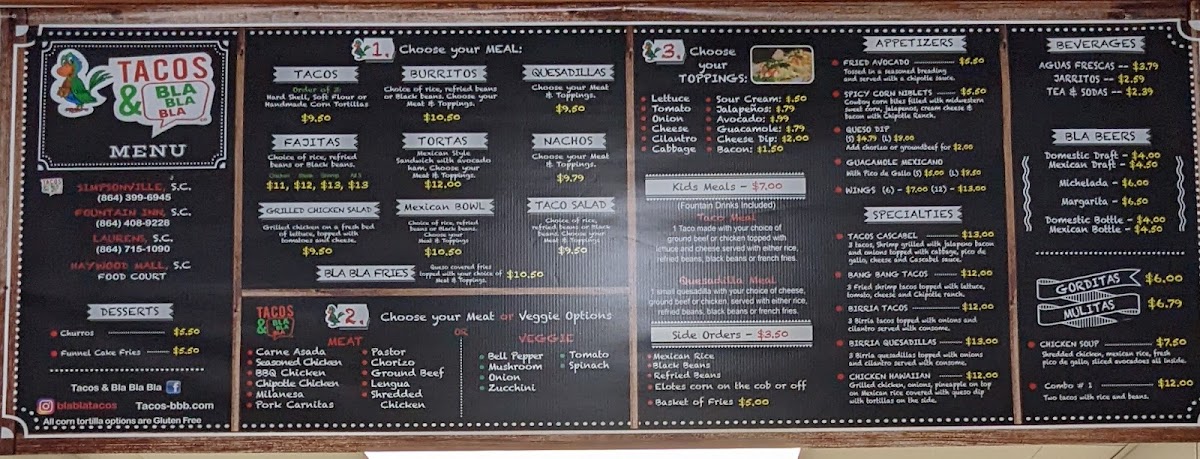 TACOS
& BLA
BLA
BLA
MENU
SIMPSONVILLE, S.C.
(864) 399-6945
FOUNTAIN INN, S.C.
(864) 408-9228
LAURENS, S.C.
(864) 715-1090
HAYWOOD MALL, S.C
FOOD COURT
DESSERTS
Churros $5.50
Funnel Cake Fries $5.50
Tacos & Bla Bla Bla
blablatacos Tacos-bbb.com
All corn tortilla options are Gluten Free
1. Choose your MEAL:
TACOS
Order of 3:
Hard Shell, Soft Flour or
Handmade Corn Tortillas
$9.50
BURRITOS
Choice of rice, refried beans
or Black beans. Choose your
Meat & Toppings.
$10.50
QUESADILLAS
Choose your Meat
& Toppings.
$9.50
FAJITAS
Choice of rice, refried
beans or Black beans.
Chicken Steak Shrimp All 3
$11, $12, $13, $13
TORTAS
Mexican Style
Sandwich with avocado
ham, Choose your
Meat & Toppings.
$12.00
NACHOS
Choose your Meat
& Toppings.
$9.79
GRILLED CHICKEN SALAD
Grilled chicken on a fresh bed
of lettuce, topped with
tomatoes and cheese.
$9.50
Mexican BOWL
Choice of rice, refried
beans or Black beans.
Choose your
Meat & Toppings
$10.50
TACO SALAD
Choice of rice,
refried beans or Black
beans. Choose your
Meat & Toppings
$9.50
BLA BLA FRIES
Queso covered fries
topped with your choice of
Meat & Toppings.
$10.50
TACOS
& BLA
BLA
BLA
2. Choose your Meat or Veggie Options
MEAT
Carne Asada
Seasoned Chicken
BBQ Chicken
Chipotle Chicken
Milanesa
Pork Carnitas
Pastor
Chorizo
Ground Beef
Lengua
Shredded
Chicken
OR
VEGGIE
Bell Pepper
Mushroom
Onion
Zucchini
Tomato
Spinach
3. Choose
your
TOPPINGS:
Lettuce
Tomato
Onion
Cheese
Cilantro
Cabbage
Sour Cream: $.50
Jalapeños: $.79
Avocado: $.99
Guacamole: $.79
Cheese Dip: $2.00
Bacon: $1.50
Kids Meals - $7.00
(Fountain Drinks Included)
Taco Meal
1 Taco made with your choice of
ground beef or chicken topped with
lettuce and cheese served with either rice,
refried beans, black beans or french fries.
Quesadilla Meal
1 small quesadilla with your choice of cheese,
ground beef or chicken, served with either rice,
refried beans, black beans or french fries.
Side Orders - $3.50
Mexican Rice
Black Beans
Refried Beans
Elotes corn on the cob or off
Basket of Fries $5.00
APPETIZERS
FRIED AVOCADO $5.50
Tossed in a seasoned breading
and served with a chipotle sauce.
SPICY CORN NIBLETS $5.50
Cowboy corn bites filled with midwestern
sweet corn, jalapenos, cream cheese &
bacon with Chipotle Ranch.
QUESO DIP
(S) $4.79 (L) $9.00
Add chorizo or groundbeef for $2.00
GUACAMOLE MEXICANO
With Pico de Gallo (S) $5.00 (L) $9.50
WINGS (6) - $7.00 (12) - $13.00
SPECIALTIES
TACOS CASCABEL $13.00
3 tacos, Shrimp grilled with jalapeno bacon
and onions topped with cabbage, pico de
gallo, cheese and Cascabel sauce.
BANG BANG TACOS $12.00
3 Fried shrimp tacos topped with lettuce,
tomato, cheese and Chipotle ranch.
BIRRIA TACOS $12.00
3 Birria tacos topped with onions and
cilantro served with consome.
BIRRIA QUESADILLAS $13.00
3 Birria quesadillas topped with onions
and cilantro served with consome.
CHICKEN HAWAIIAN $12.00
Grilled chicken, onions, pineapple on top
on Mexican rice covered with queso dip
with tortillas on the side.
BEVERAGES
AGUAS FRESCAS - $3.79
JARRITOS - $2.59
TEA & SODAS - $2.39
BLA BEERS
Domestic Draft - $4.00
Mexican Draft - $4.50
Michelada - $6.00
Margarita - $6.50
Domestic Bottle - $4.00
Mexican Bottle - $4.50
GORDITAS $6.00
MULITAS $6.79
CHICKEN SOUP $7.50
Shredded chicken, mexican rice, fresh
pico de gallo, sliced avocadoes all inside.
Combo # 1 $12.00
Two tacos with rice and beans.